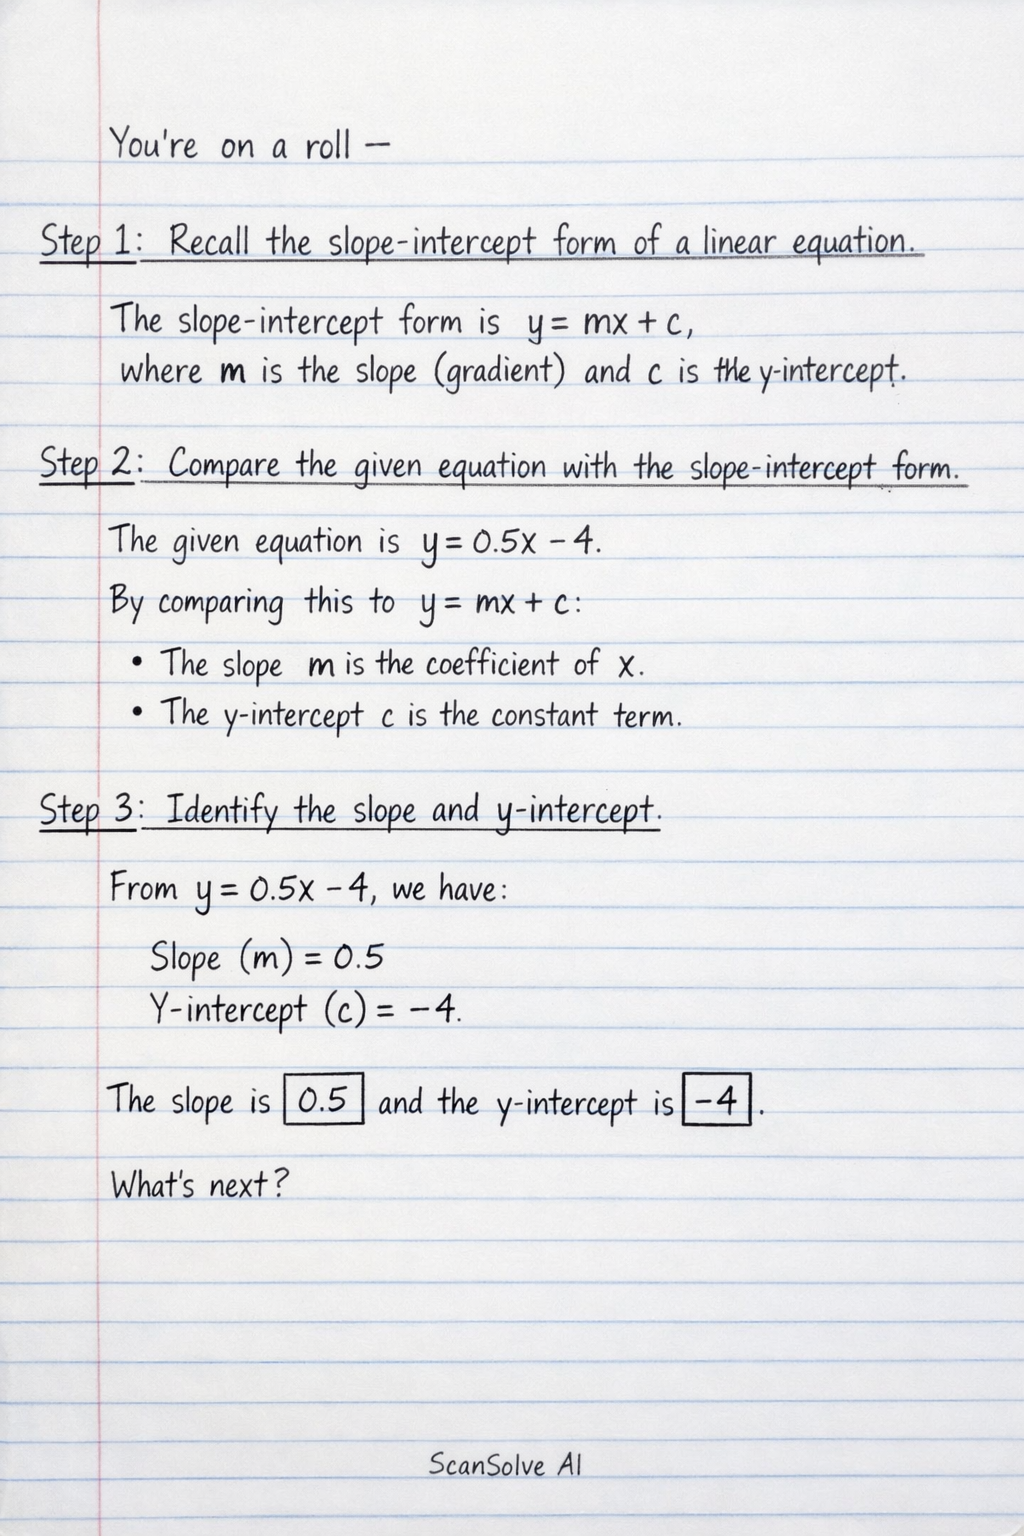 You're on a roll —
Step 1: Recall the slope-intercept form of a linear equation.
The slope-intercept form is y = mx + c,
where m is the slope (gradient) and c is the y-intercept.
Step 2: Compare the given equation with the slope-intercept form.
The given equation is y = 0.5x - 4.
By comparing this to y = mx + c:
• The slope m is the coefficient of x.
• The y-intercept c is the constant term.
Step 3: Identify the slope and y-intercept.
From y = 0.5x - 4, we have:
Slope (m) = 0.5
Y-intercept (c) = -4.
The slope is 0.5 and the y-intercept is -4.
What's next?
ScanSolve AI